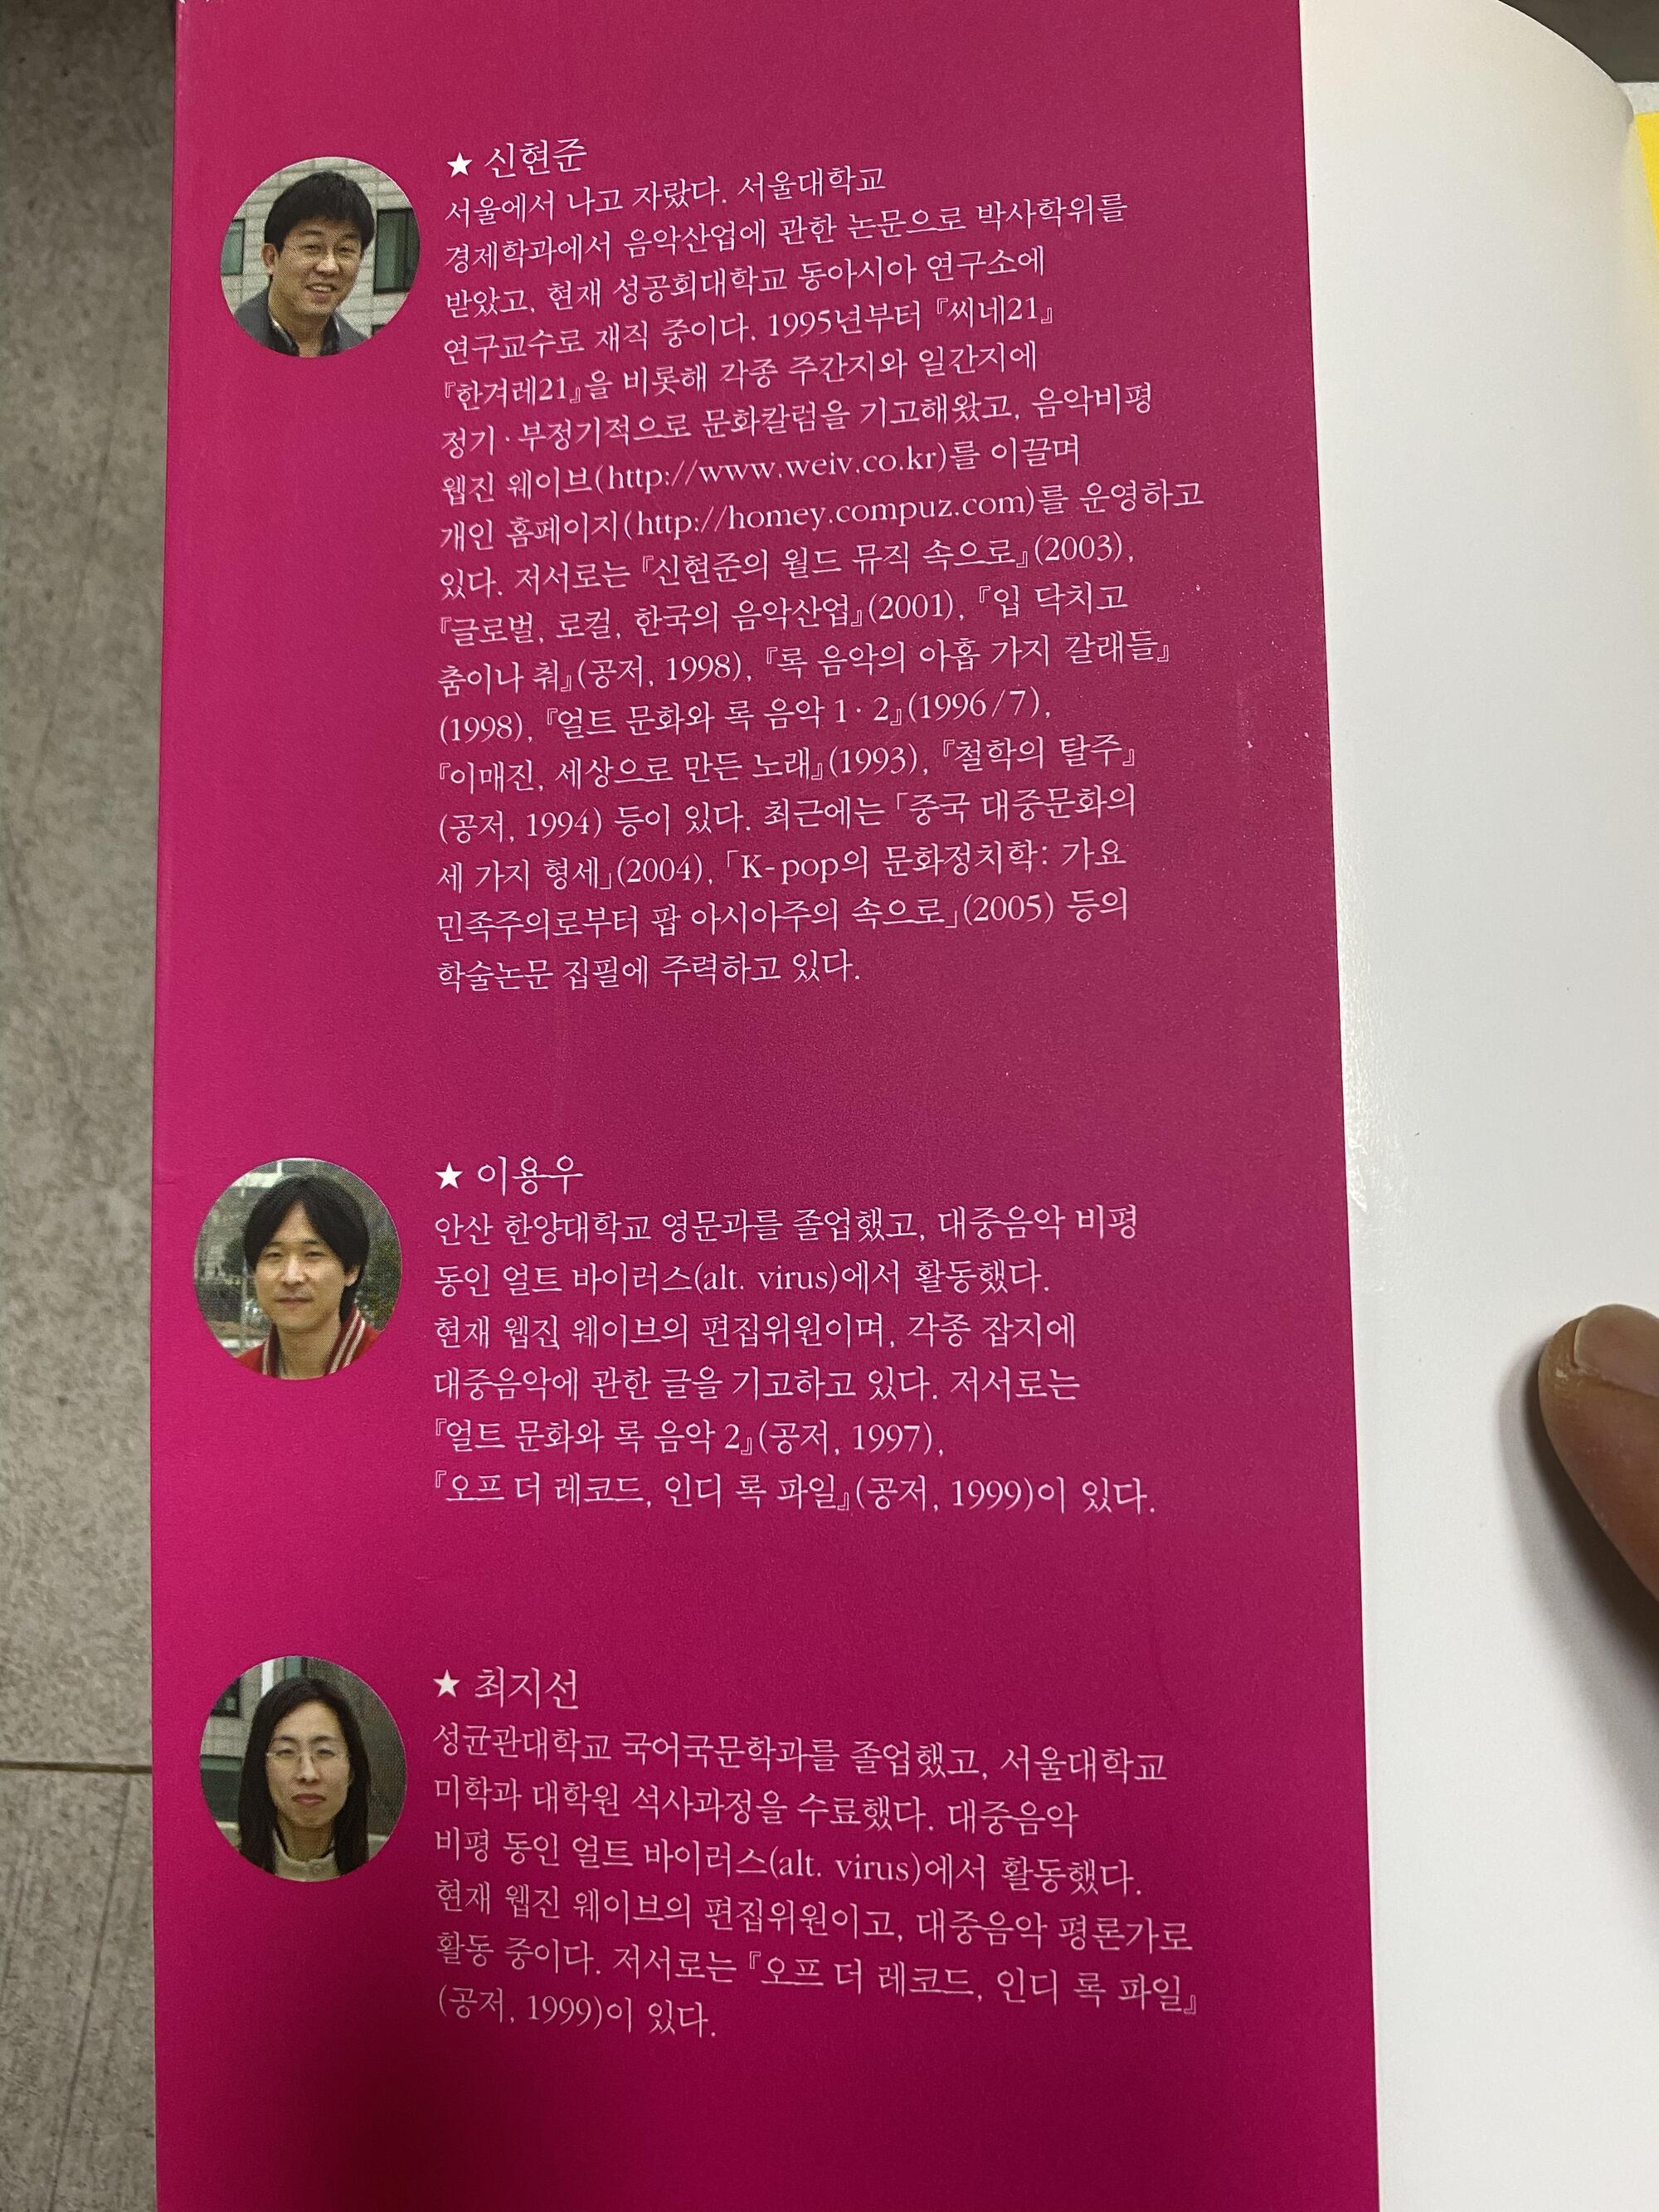 ★ 신현준
서울에서 나고 자랐다. 서울대학교
경제학과에서 음악산업에 관한 논문으로 박사학위를
받았고, 현재 성공회대학교 동아시아 연구소에
연구교수로 재직 중이다. 1995년부터 『씨네21』
『한겨레21』을 비롯해 각종 주간지와 일간지에
정기·부정기적으로 문화칼럼을 기고해왔고, 음악비평
웹진 웨이브(http://www.weiv.co.kr)를 이끌며
개인 홈페이지(http://homey.compuz.com)를 운영하고
있다. 저서로는 『신현준의 월드 뮤직 속으로』(2003),
『글로벌, 로컬, 한국의 음악산업』(2001), 『입 닥치고
춤이나 춰』(공저, 1998), 『록 음악의 아홉 가지 갈래들』
(1998), 『얼트 문화와 록 음악 1·2』(1996/7),
『이매진, 세상으로 만든 노래』(1993), 『철학의 탈주』
(공저, 1994) 등이 있다. 최근에는 「중국 대중문화의
세 가지 형세」(2004), 「K-pop의 문화정치학: 가요
민족주의로부터 팝 아시아주의 속으로」(2005) 등의
학술논문 집필에 주력하고 있다.
★ 이용우
안산 한양대학교 영문과를 졸업했고, 대중음악 비평
동인 얼트 바이러스(alt. virus)에서 활동했다.
현재 웹진 웨이브의 편집위원이며, 각종 잡지에
대중음악에 관한 글을 기고하고 있다. 저서로는
『얼트 문화와 록 음악 2』(공저, 1997),
『오프 더 레코드, 인디 록 파일』(공저, 1999)이 있다.
★ 최지선
성균관대학교 국어국문학과를 졸업했고, 서울대학교
미학과 대학원 석사과정을 수료했다. 대중음악
비평 동인 얼트 바이러스(alt. virus)에서 활동했다.
현재 웹진 웨이브의 편집위원이고, 대중음악 평론가로
활동 중이다. 저서로는 『오프 더 레코드, 인디 록 파일』
(공저, 1999)이 있다.